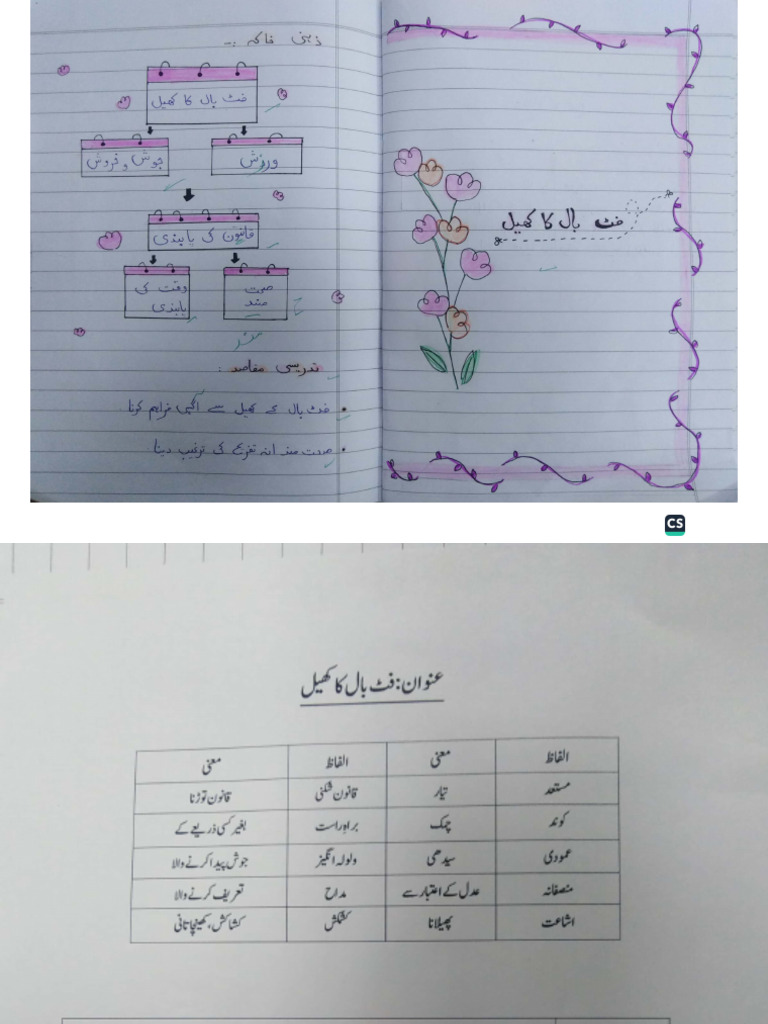 ذہنی خاکہ :-
فٹ بال کا کھیل
ورزش
جوش و خروش
قانون کی پابندی
صحت
مند
وقت کی
پابندی
ح
مند
تدریسی مقاصد :
فٹ بال کے کھیل سے آگہی فراہم کرنا
صحت مند انہ تفریح کی ترغیب دینا
فٹ بال کا کھیل
CS
عنوان: فٹ بال کا کھیل
الفاظ معنی الفاظ معنی
مستعد تیار قانون شکنی قانون توڑنا
کوند چمک براہِ راست بغیر کسی ذریعے کے
عمودی سیدھی ولولہ انگیز جوش پیدا کرنے والا
منصفانہ عدل کے اعتبار سے مداح تعریف کرنے والا
اشاعت پھیلانا کشمکش کشاکش، کھینچا تانی